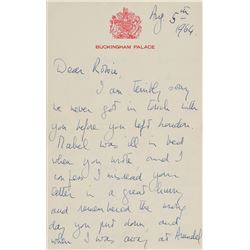 Aug 5th
1964
BUCKINGHAM PALACE
Dear Robin,
I am terribly sorry
we never got in touch with
you before you left London.
Mabel was ill in bed
when you wrote and I
confess I misread your
letter in a great hurry
and remembered the wrong
day you put down, and
when I was away at Arundel